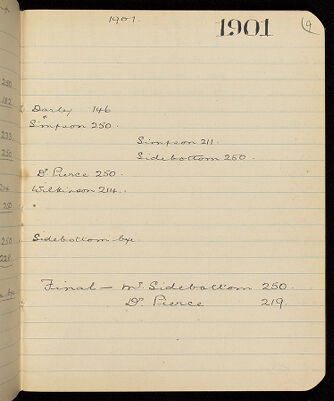 1901.
1901
9
Darby 146
Simpson 250.
Simpson 211.
Sidebottom 250.
Dr Pierce 250.
Wilkinson 214.
Sidebottom bye
Final — Mr Sidebottom 250.
Dr. Pierce 219
250
182
233
250
250
250
228